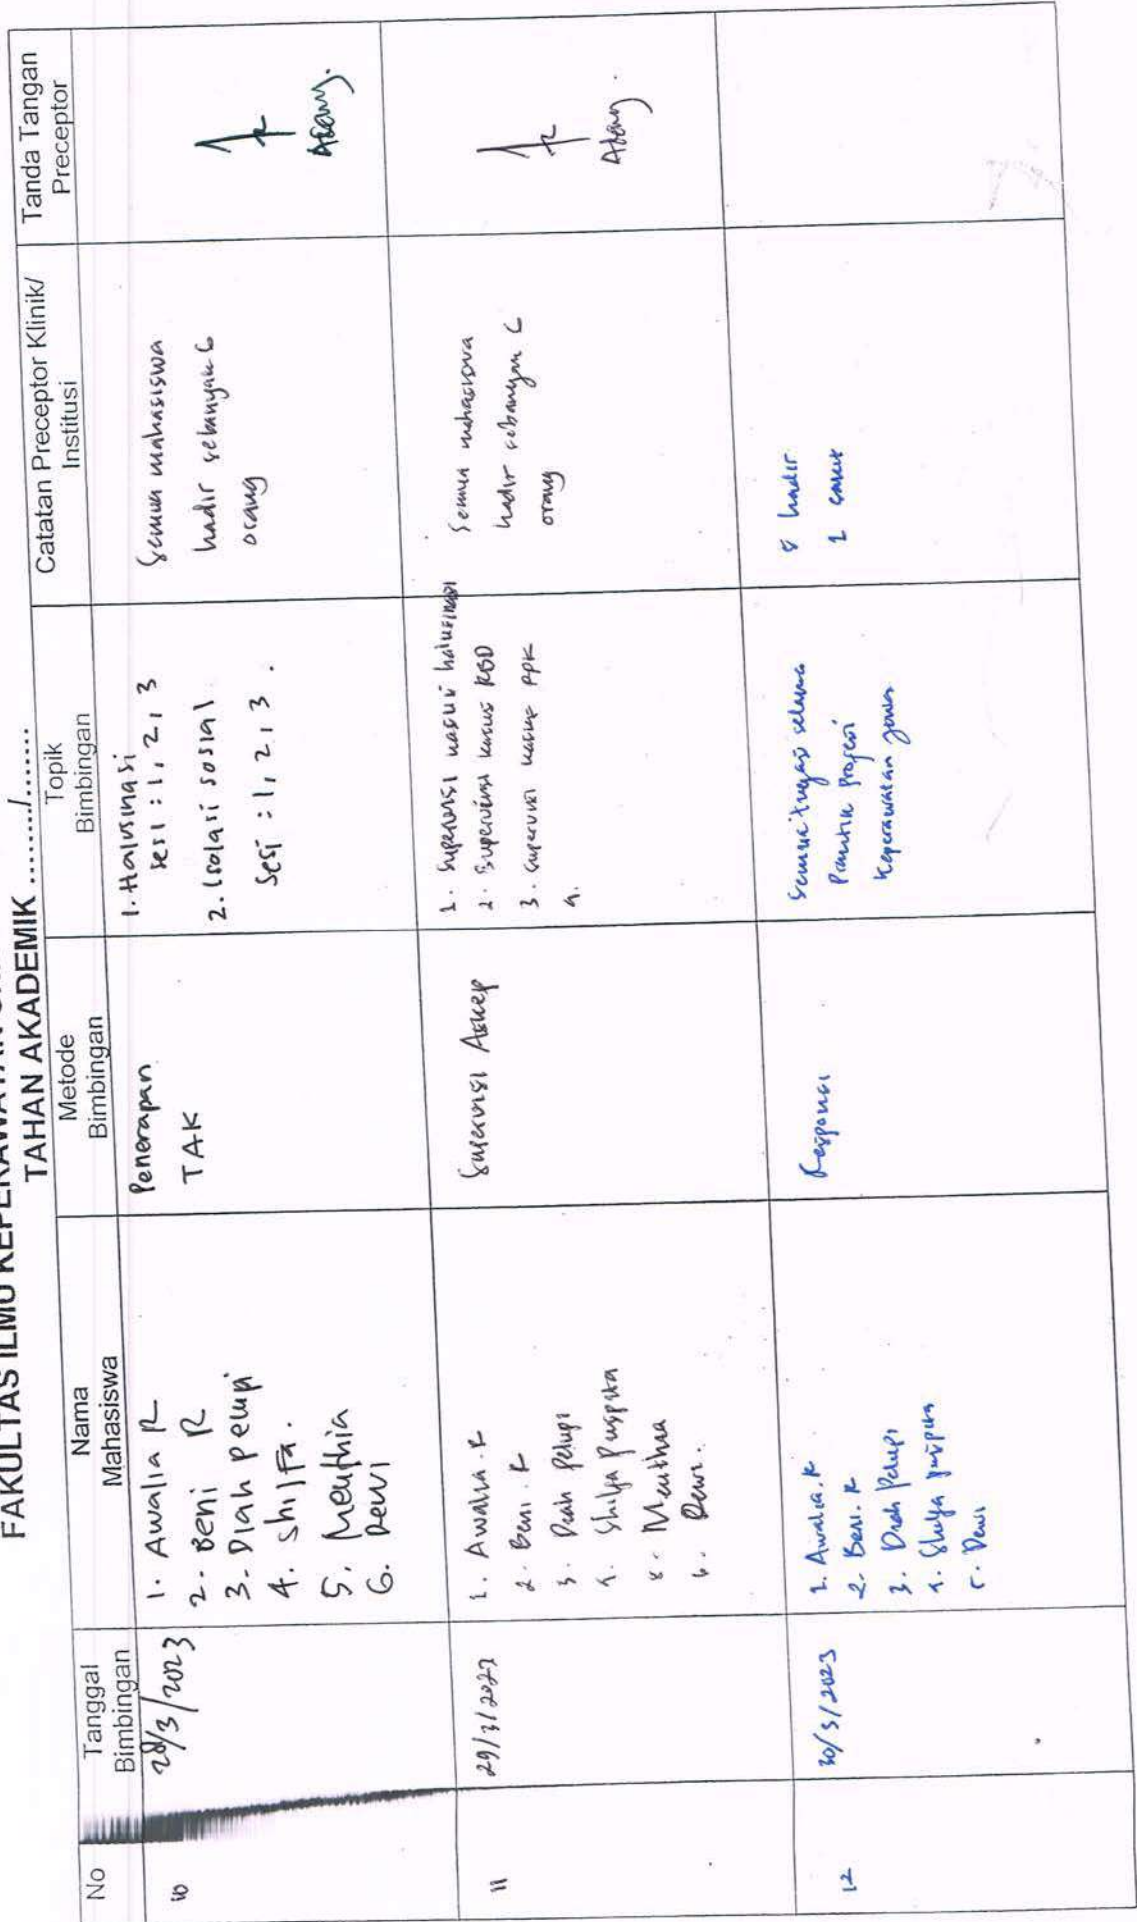 FAKULTAS ILMU KEPERAWATAN
TAHAN AKADEMIK ........./.......
No
Tanggal
Bimbingan
Nama
Mahasiswa
Metode
Bimbingan
Topik
Bimbingan
Catatan Preceptor Klinik/
Institusi
Tanda Tangan
Preceptor
10
28/3/2023
1. Awalia R
2. Beni R
3. Diah pelupi
4. Shilfa.
5. Meuthia
6. Dewi
Penerapan
TAK
1. Halusinasi
sesi : 1, 2, 3
2. Isolasi sosial
Sesi : 1, 2, 3.
Semua mahasiswa
hadir sebanyak 6
orang
11
29/3/2023
1. Awalia. R
2. Beni. R
3. Diah Pelupi
4. Shilfa Puspita
5. Meuthia
6. Dewi.
Supervisi Askep
1. Supervisi kasus halusinasi
2. Supervisi kasus RBD
3. Supervisi kasus PPK
4.
Semua mahasiswa
hadir sebanyak 6
orang
12
30/3/2023
1. Awalia. R
2. Beni. R
3. Diah Pelupi
4. Shilfa puspita
5. Dewi
Responsi
Semua tugas selama
Praktik Profesi
Keperawatan Jiwa
5 hadir